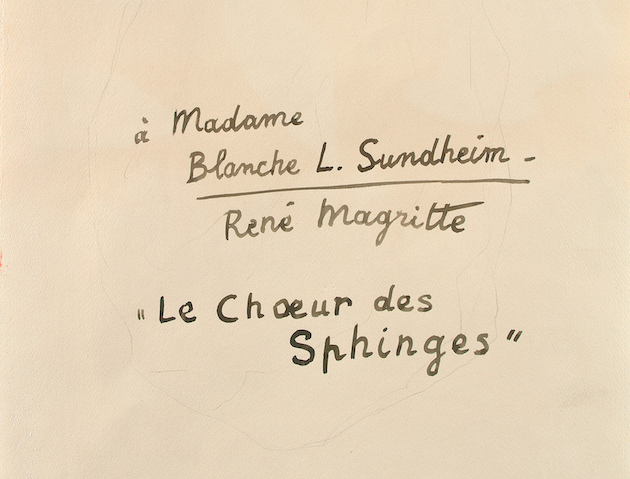 à Madame
Blanche L. Sundheim -
René Magritte
"Le Chœur des
Sphinges"